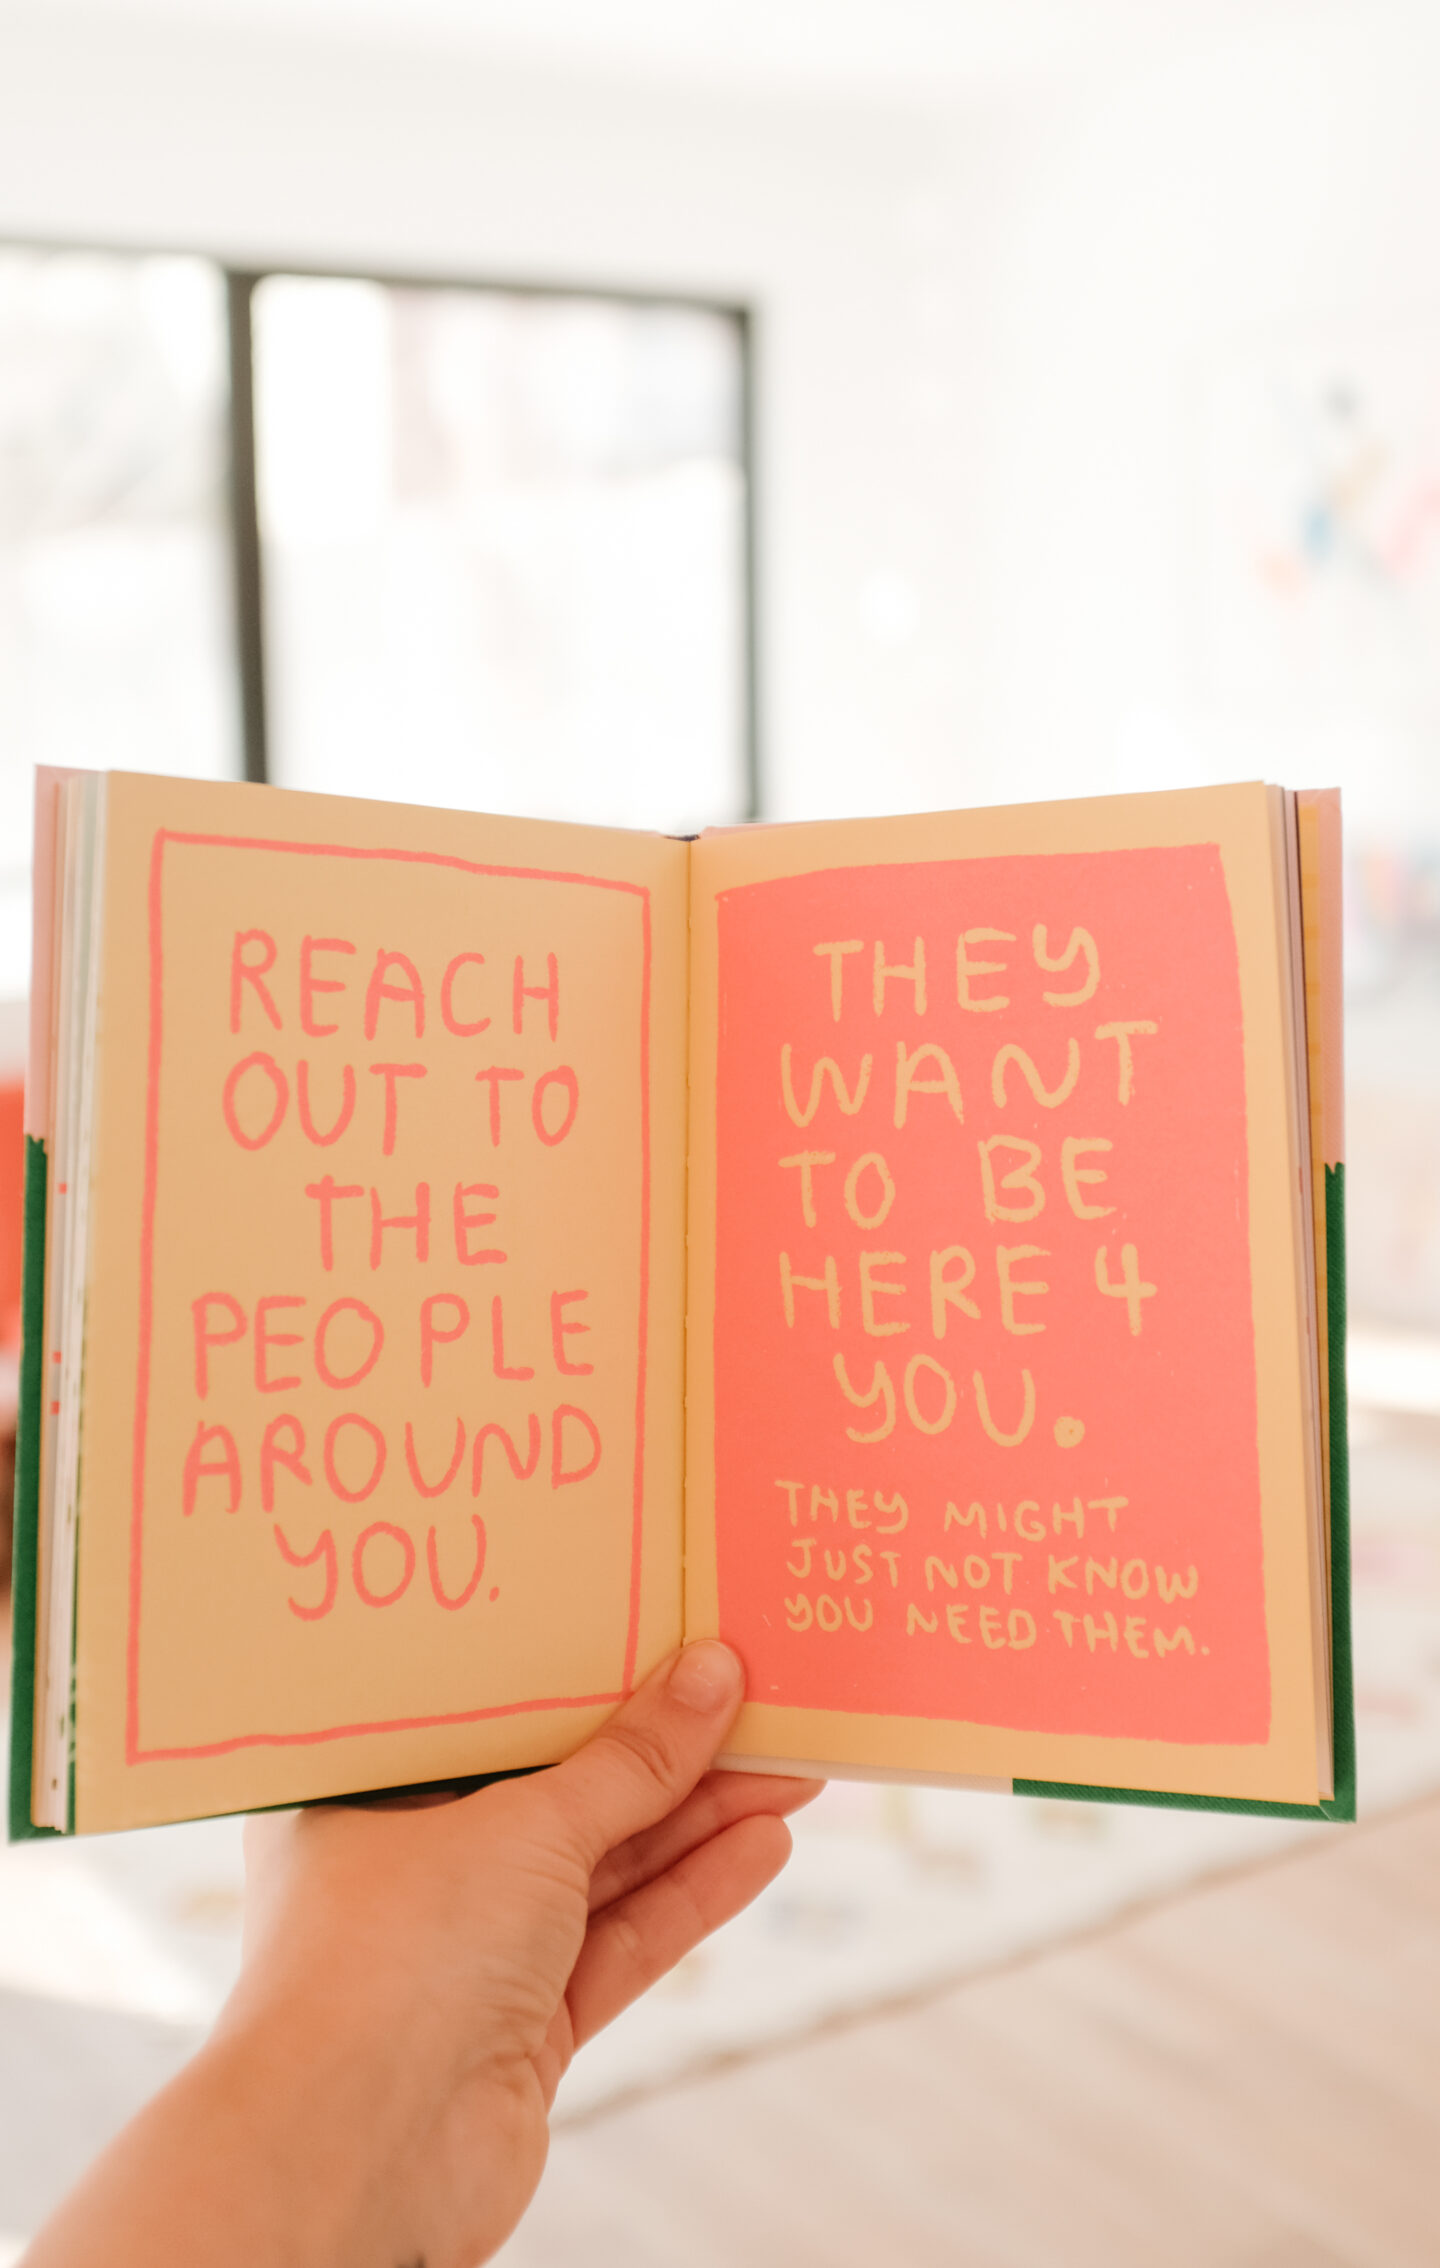 REACH
OUT TO
THE
PEOPLE
AROUND
YOU.
THEY
WANT
TO BE
HERE 4
YOU.
THEY MIGHT
JUST NOT KNOW
YOU NEED THEM.